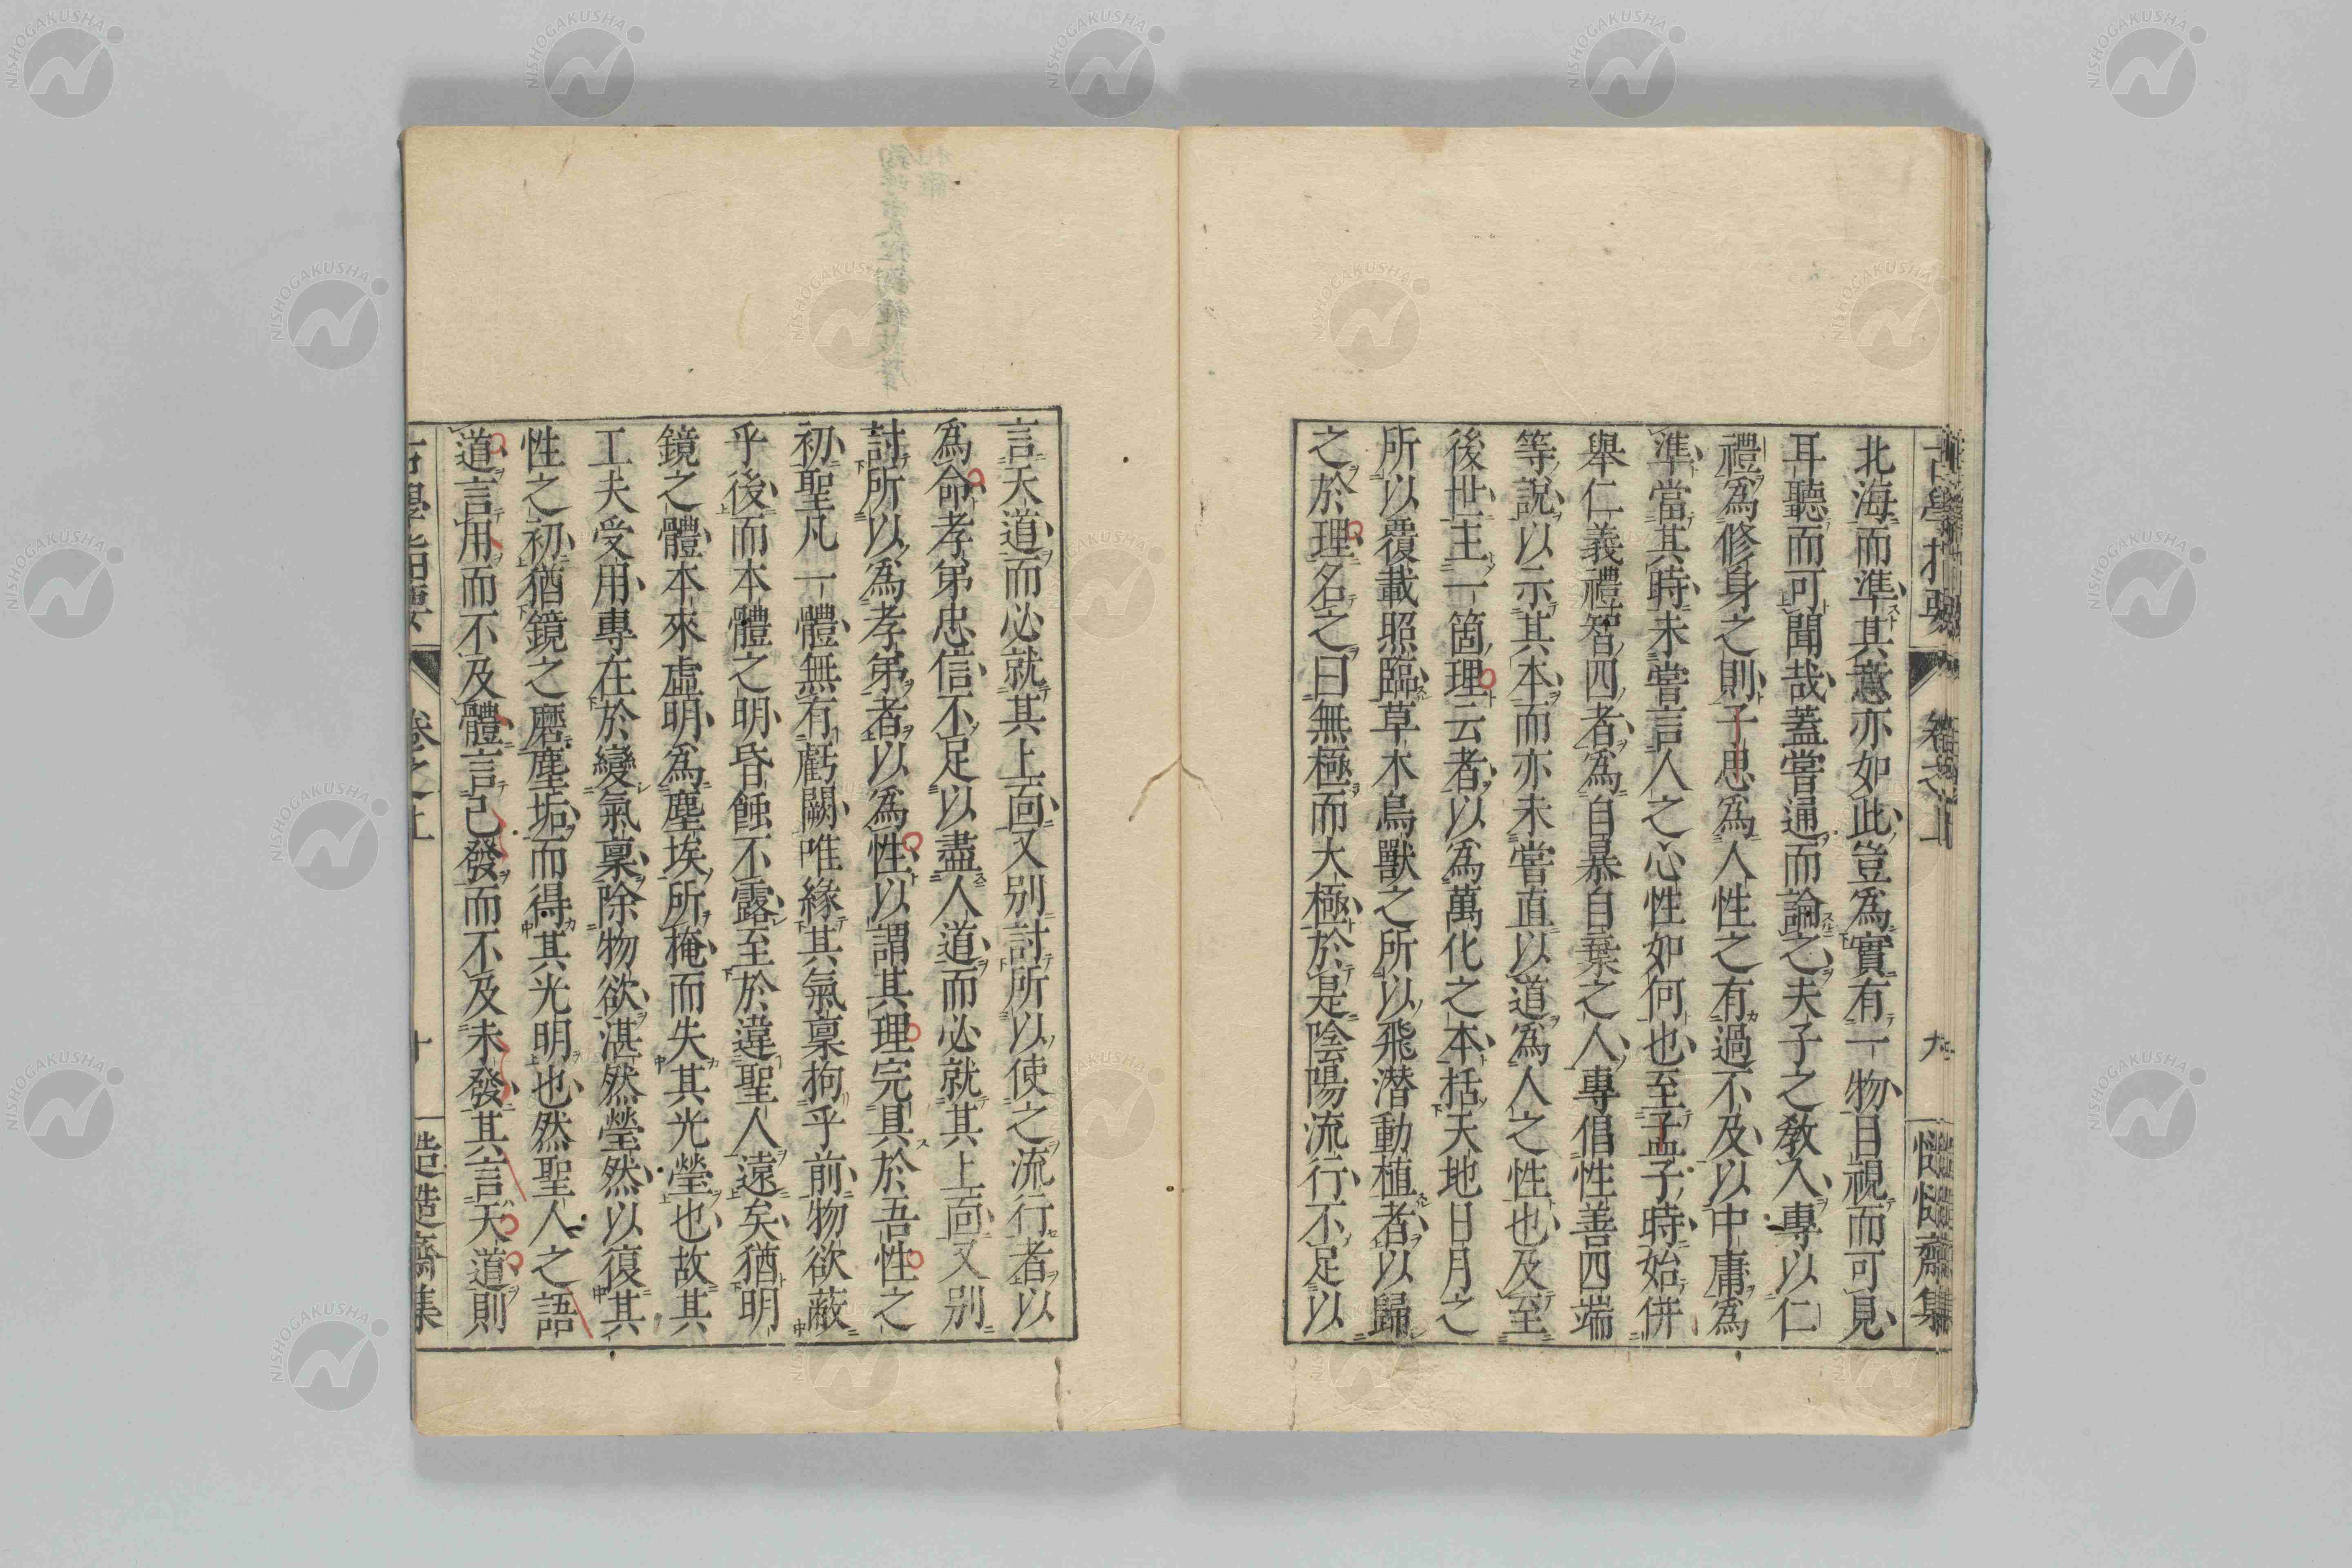 北海而準其意亦如此豈爲實有一物目視而可見
耳聽而可聞哉蓋嘗通而論之夫子之敎入專以仁
禮爲修身之則子思爲人性之有過不及以中庸爲
準當其時未嘗言人之心性如何也至孟子時始併
舉仁義禮智四者爲自暴自棄之人專倡性善四端
等說以示其本而亦未嘗直以道爲人之性也及至
後世主一箇理云者以爲萬化之本括天地日月之
所以覆載照臨草木鳥獸之所以飛潜動植者以歸
之於理名之曰無極而大極於是陰陽流行不足以
言天道而必就其上面又別討所以使之流行者以
爲命孝弟忠信不足以盡人道而必就其上面又別
討所以爲孝弟者以爲性以謂其理完具於吾性之
初聖凡一體無有虧闕唯緣其氣稟拘乎前物欲蔽
乎後而本體之明昏蝕不露至於違聖人遠矣猶明
鏡之體本來虛明爲塵埃所掩而失其光瑩也故其
工夫受用專在於變氣稟除物欲湛然瑩然以復其
性之初猶鏡之磨塵垢而得其光明也然聖人之語
道言用而不及體言已發而不及未發其言天道則
卷之上
十
九
NISHOGAKUSHA